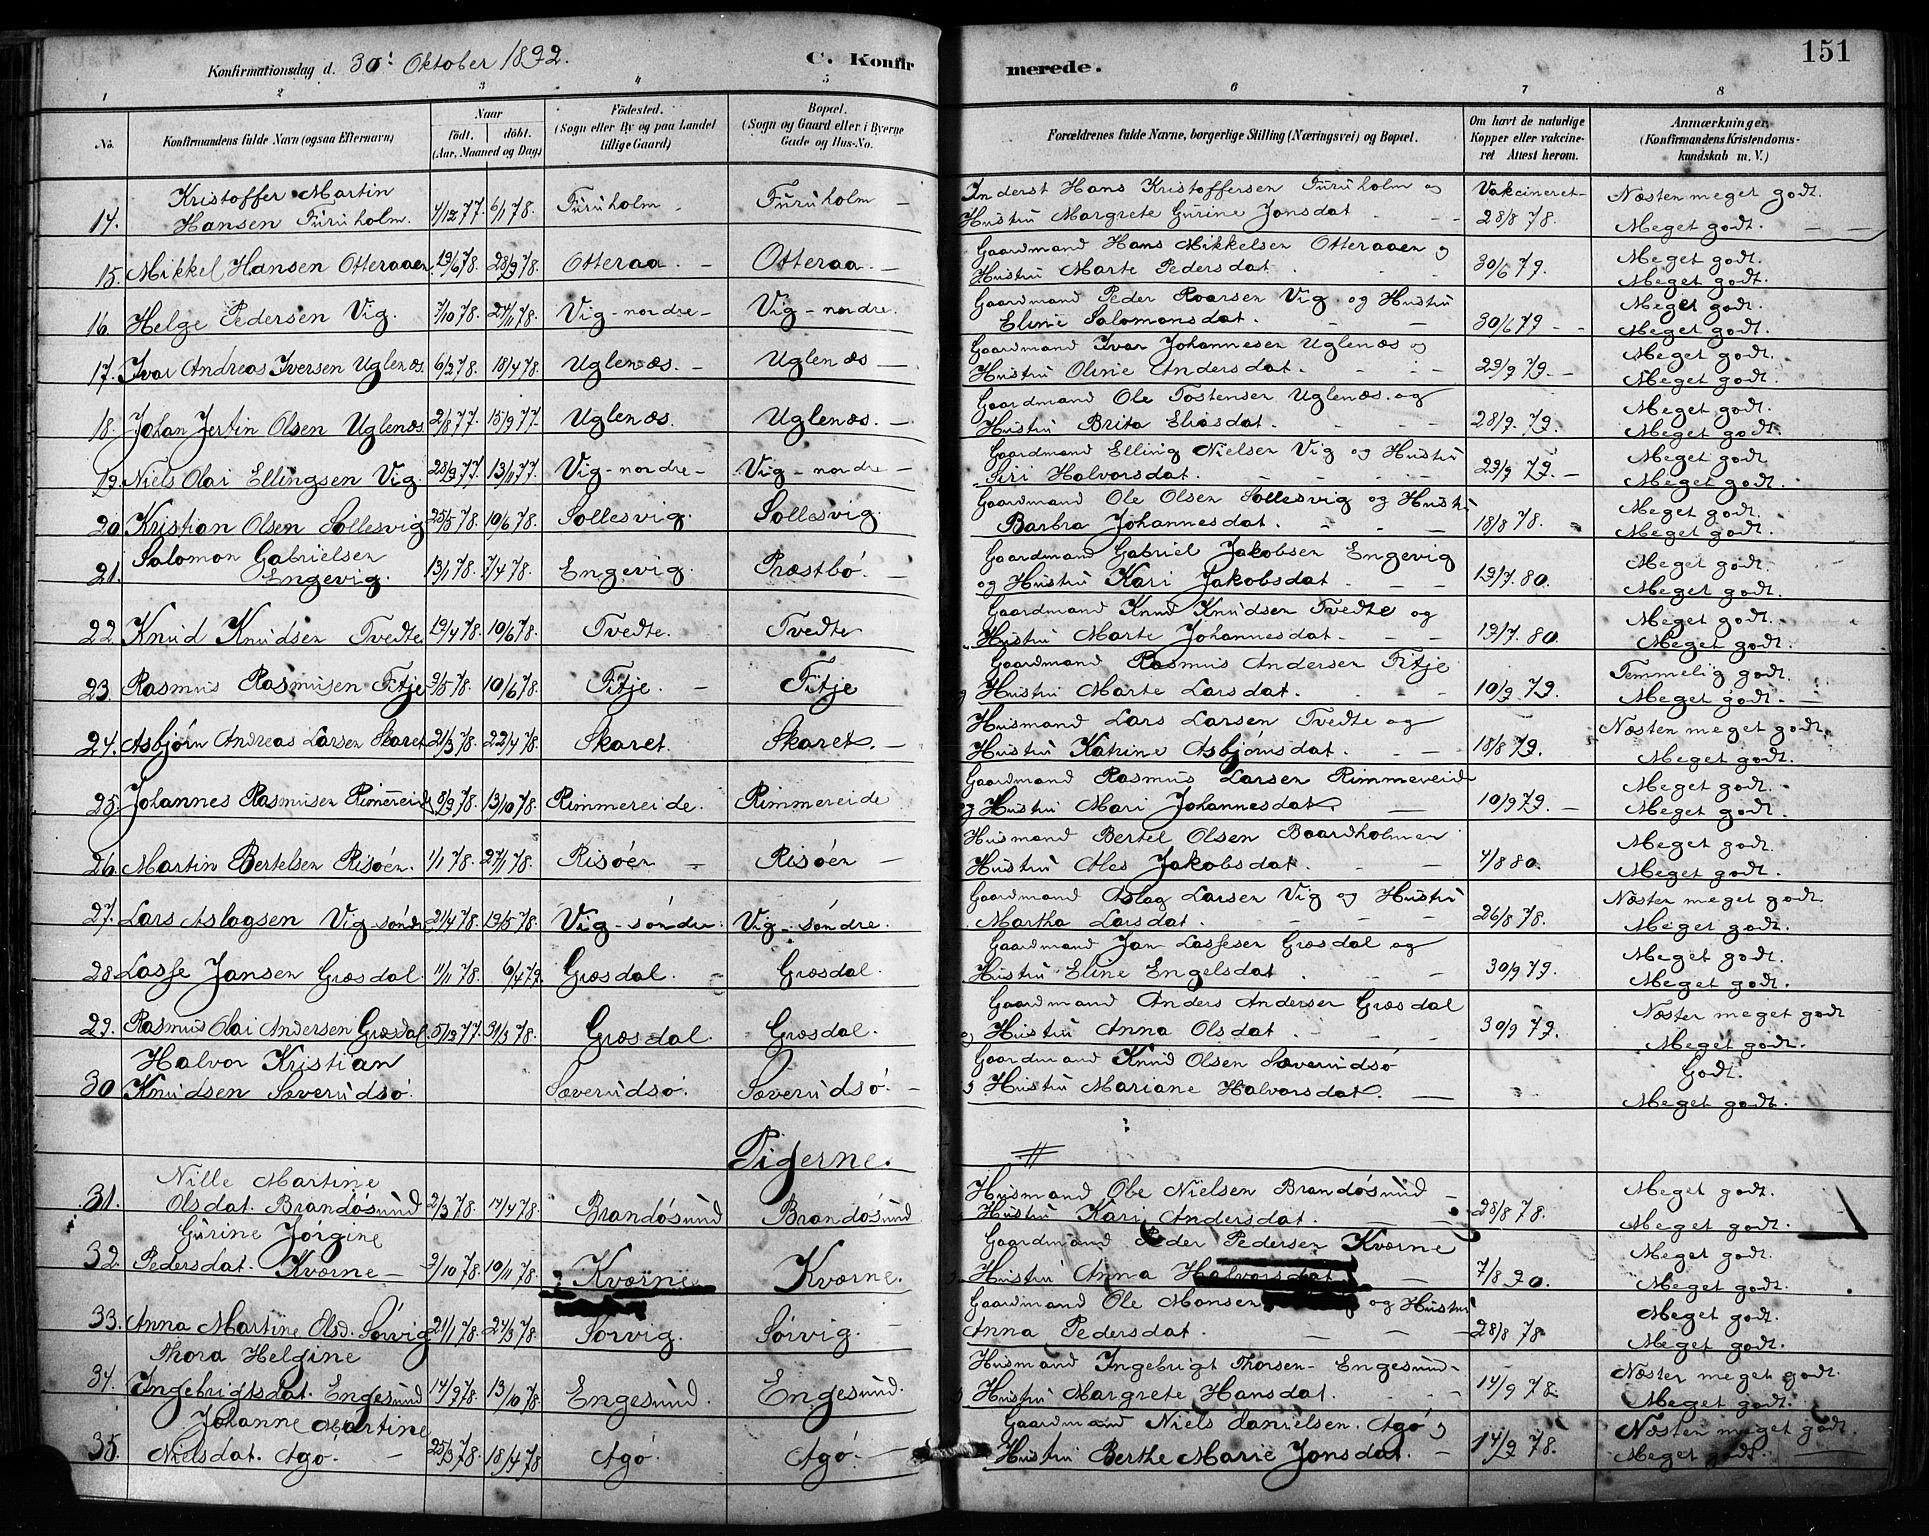 151
Konfirmationsdag d. 30' Oktober 1892. C. Konfirmerede.
1 2 3 4 5 6 7 8
No. Konfirmandens fulde Navn (ogsaa Efternavn) Naar födt. döbt. (Aar, Maaned og Dag) Födested. (Sogn eller By og paa Landet tillige Gaard) Bopæl. (Sogn og Gaard eller i Byerne Gade og Hus-No. Forældrenes fulde Navne, borgerlige Stilling (Næringsvei) og Bopæl. Om havt de naturlige Kopper eller vakcineret Attest herom. Anmærkninger (Konfirmandens Kristendomskundskab m. V.)
Kristoffer Martin Inderst Hans Kristoffersen Furuholm og Vakcineret Næsten meget godt.
14. Hansen Furuholm. 4/12 77. 6/1 78. Furuholm Furuholm Hustru Margrete Gurine Jonsdat 28/8 78. Meget godt.
Gaardmand Hans Mikkelsen Otteraaen og Meget godt.
15. Mikkel Hansen Otteraaen 19/6 78. 28/9 78. Otteraa. Otteraa. Hustru Marte Pedersdat 30/6 79. Meget godt.
Gaardmand Peder Roarsen Vig og Hustru Meget godt.
16. Helge Pedersen Vig. 7/10 78. 24/11 78. Vig-nordre Vig-nordre. Eline Salomonsdat. 30/6 79 Meget godt.
Gaardmand Ivar Johannesen Uglenæs og Meget godt.
17. Ivar Andreas Iversen Uglenæs. 6/2 78. 18/4 78. Uglenæs. Uglenæs Hustru Oline Andersdat. 29/9 79. Meget godt.
Gaardmand Ole Tostensen Uglenæs og Meget godt.
18. Johan Jertin Olsen Uglenæs 2/8 77. 15/9 77. Uglenæs. Uglenæs. Hustru Brita Eliasdat. 28/9. 79. Meget godt.
Gaardmand Elling Nielsen Vig og Hustru Meget godt
19. Niels Olai Ellingsen Vig. 28/9 77. 13/11 77. Vig-nordre Vig-nordre Siri Halvorsdat. 29/9 79. Meget godt.
Gaardmand Ole Olsen Sollesvig og Hustru Meget godt.
20. Kristian Olsen Sollesvig 25/5 78. 10/6 78. Sollesvig. Sollesvig. Barbra Johannesdat. 18/8 78. Meget godt.
Salomon Gabrielsen Gaardmand Gabriel Jakobsen Engevig Meget godt.
21. Engevig. 13/1 78. 7/4 78. Engevig. Præstbö. og Hustru Kari Jakobsdat. 19/7. 80. Meget godt.
Gaardmand Knud Knudsen Tvedte og Meget godt.
22. Knud Knudsen Tvedte 19/4 78. 10/6 78. Tvedte. Tvedte Hustru Marte Johannesdat. 19/7. 80. Meget godt.
Gaardmand Rasmus Andersen Fitje Temmelig godt.
23. Rasmus Rasmusen Fitje 9/5 78. 10/6 78. Fitje. Fitje Hustru Marte Larsdat. 10/9 79. Meget godt.
Husmand Lars Larsen Tvedte og Næsten meget godt.
24. Asbjørn Andreas Larsen Skaret 21/3 78. 22/4 78. Skaret. Skaret. Hustru Katrine Asbjörnsdat. 18/8 79. Meget godt.
Gaardmand Rasmus Larsen Rimmereide Meget godt.
25. Johannes Rasmusen Rimereide 8/9 78. 13/10 78. Rimmereide. Rimmereide og Hustru Mari Johannesdat. 10/9 79. Meget godt.
Husmand Bertel Olsen Baardholmen Meget godt.
26. Martin Bertelsen Risöen. 1/1 78. 27/1 78. Risöen Risöen Hustru Ales Jakobsdat 4/8 80. Meget godt.
Gaardmand Aslag Larsen Vig og Hustru Næsten meget godt
27. Lars Aslagsen Vig söndre 21/4 78. 19/5 78. Vig-söndre. Vig-söndre. Martha Larsdat. 26/8 78. Meget godt.
Gaardmand Jan Lassesen Græsdal og Meget godt.
28. Lasse Jansen Græsdal. 11/11 78. 6/4 79. Græsdal. Græsdal. Hustru Eline Engelsdat 30/9 79. Meget godt.
Gaardmand Anders Andersen Græsdal Næsten meget godt
29. Rasmus Olai Andersen Græsdal. 5/12 77. 31/3 78. Græsdal. Græsdal. Hustru Anna Olsdat 30/9 79. Meget godt.
Halvor Kristian Gaardmand Knud Olsen Sæverudsö Godt.
30 Knudsen Sæverudsö. Sæverudsö. Sæverudsö. Hustru Mariane Halvorsdat. Meget godt.
Pigerne.
Nille Martine Husmand Obe Nielsen Brandösund Meget godt.
31. Olsdat. Brandösund 2/3 78. 14/4 78. Brandösund Brandösund Hustru Kari Andersdat. 28/8 78. Meget godt.
Gurine Jörgine Gaardmand Peder Pedersen Kværne Meget godt.
32. Pedersdat. Kværne 3/10 78. 10/11 78. Kværne Kværne. Hustru Anna Halvorsdat 7/8 90. Meget godt.
Gaardmand Ole Monsen og Hustru Meget godt.
33. Anna Martine Olsd. Sörvig 21/1 78. 24/3 78. Sörvig. Sörvig. Anna Pedersdat. 28/8 78 Meget godt.
Thora Helgine Husmand Ingebrigt Thorsen Engesund Næsten meget godt.
34. Ingebrigtsdat. Engesund 14/9 78. 13/10 78. Engesund. Engesund. Hustru Margrete Hansdat. 14/9 78. Meget godt.
Johanne Martine Gaardmand Niels Danielsen. Agö Næsten meget godt.
35. Nielsdat. Agö 25/3 78. 18/4 78 Agö Agö. Hustru Berthe Marie Jonsdat. 14/9 78. Meget godt.